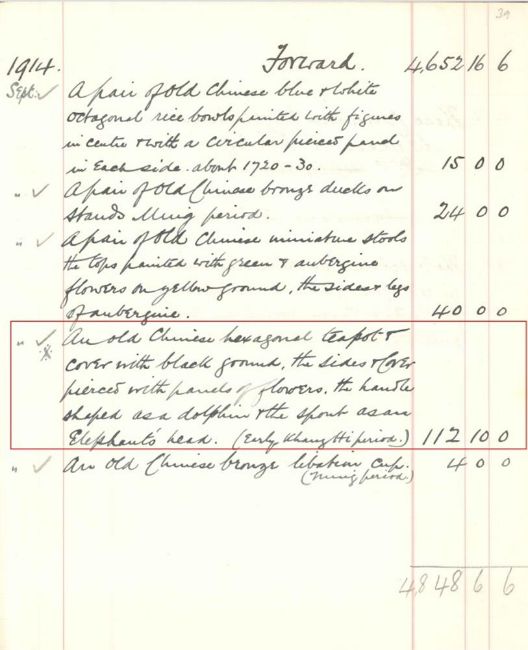 39
1914. Forward. 4,652 16 6
Sept. ✓ A pair of Old Chinese blue & White
octagonal rice bowls painted with figures
in centre & with a circular pierced panel
in Each side. about 1720-30. 15 0 0
" ✓ A pair of Old Chinese bronze ducks on
Stands Ming period. 24 0 0
" ✓ A pair of Old Chinese miniature stools
the tops painted with green & aubergine
flowers on yellow ground, the sides & legs
of aubergine. 40 0 0
" ✓ An old Chinese hexagonal teapot &
cover with black ground, the sides & Cover
pierced with panels of flowers, the handle
shaped as a dolphin & the spout as an
Elephant's head. (Early Khang Hti period.) 112 10 0
" ✓ An old Chinese bronze libation cup. 4 0 0
(Ming period.)
4848 6 6